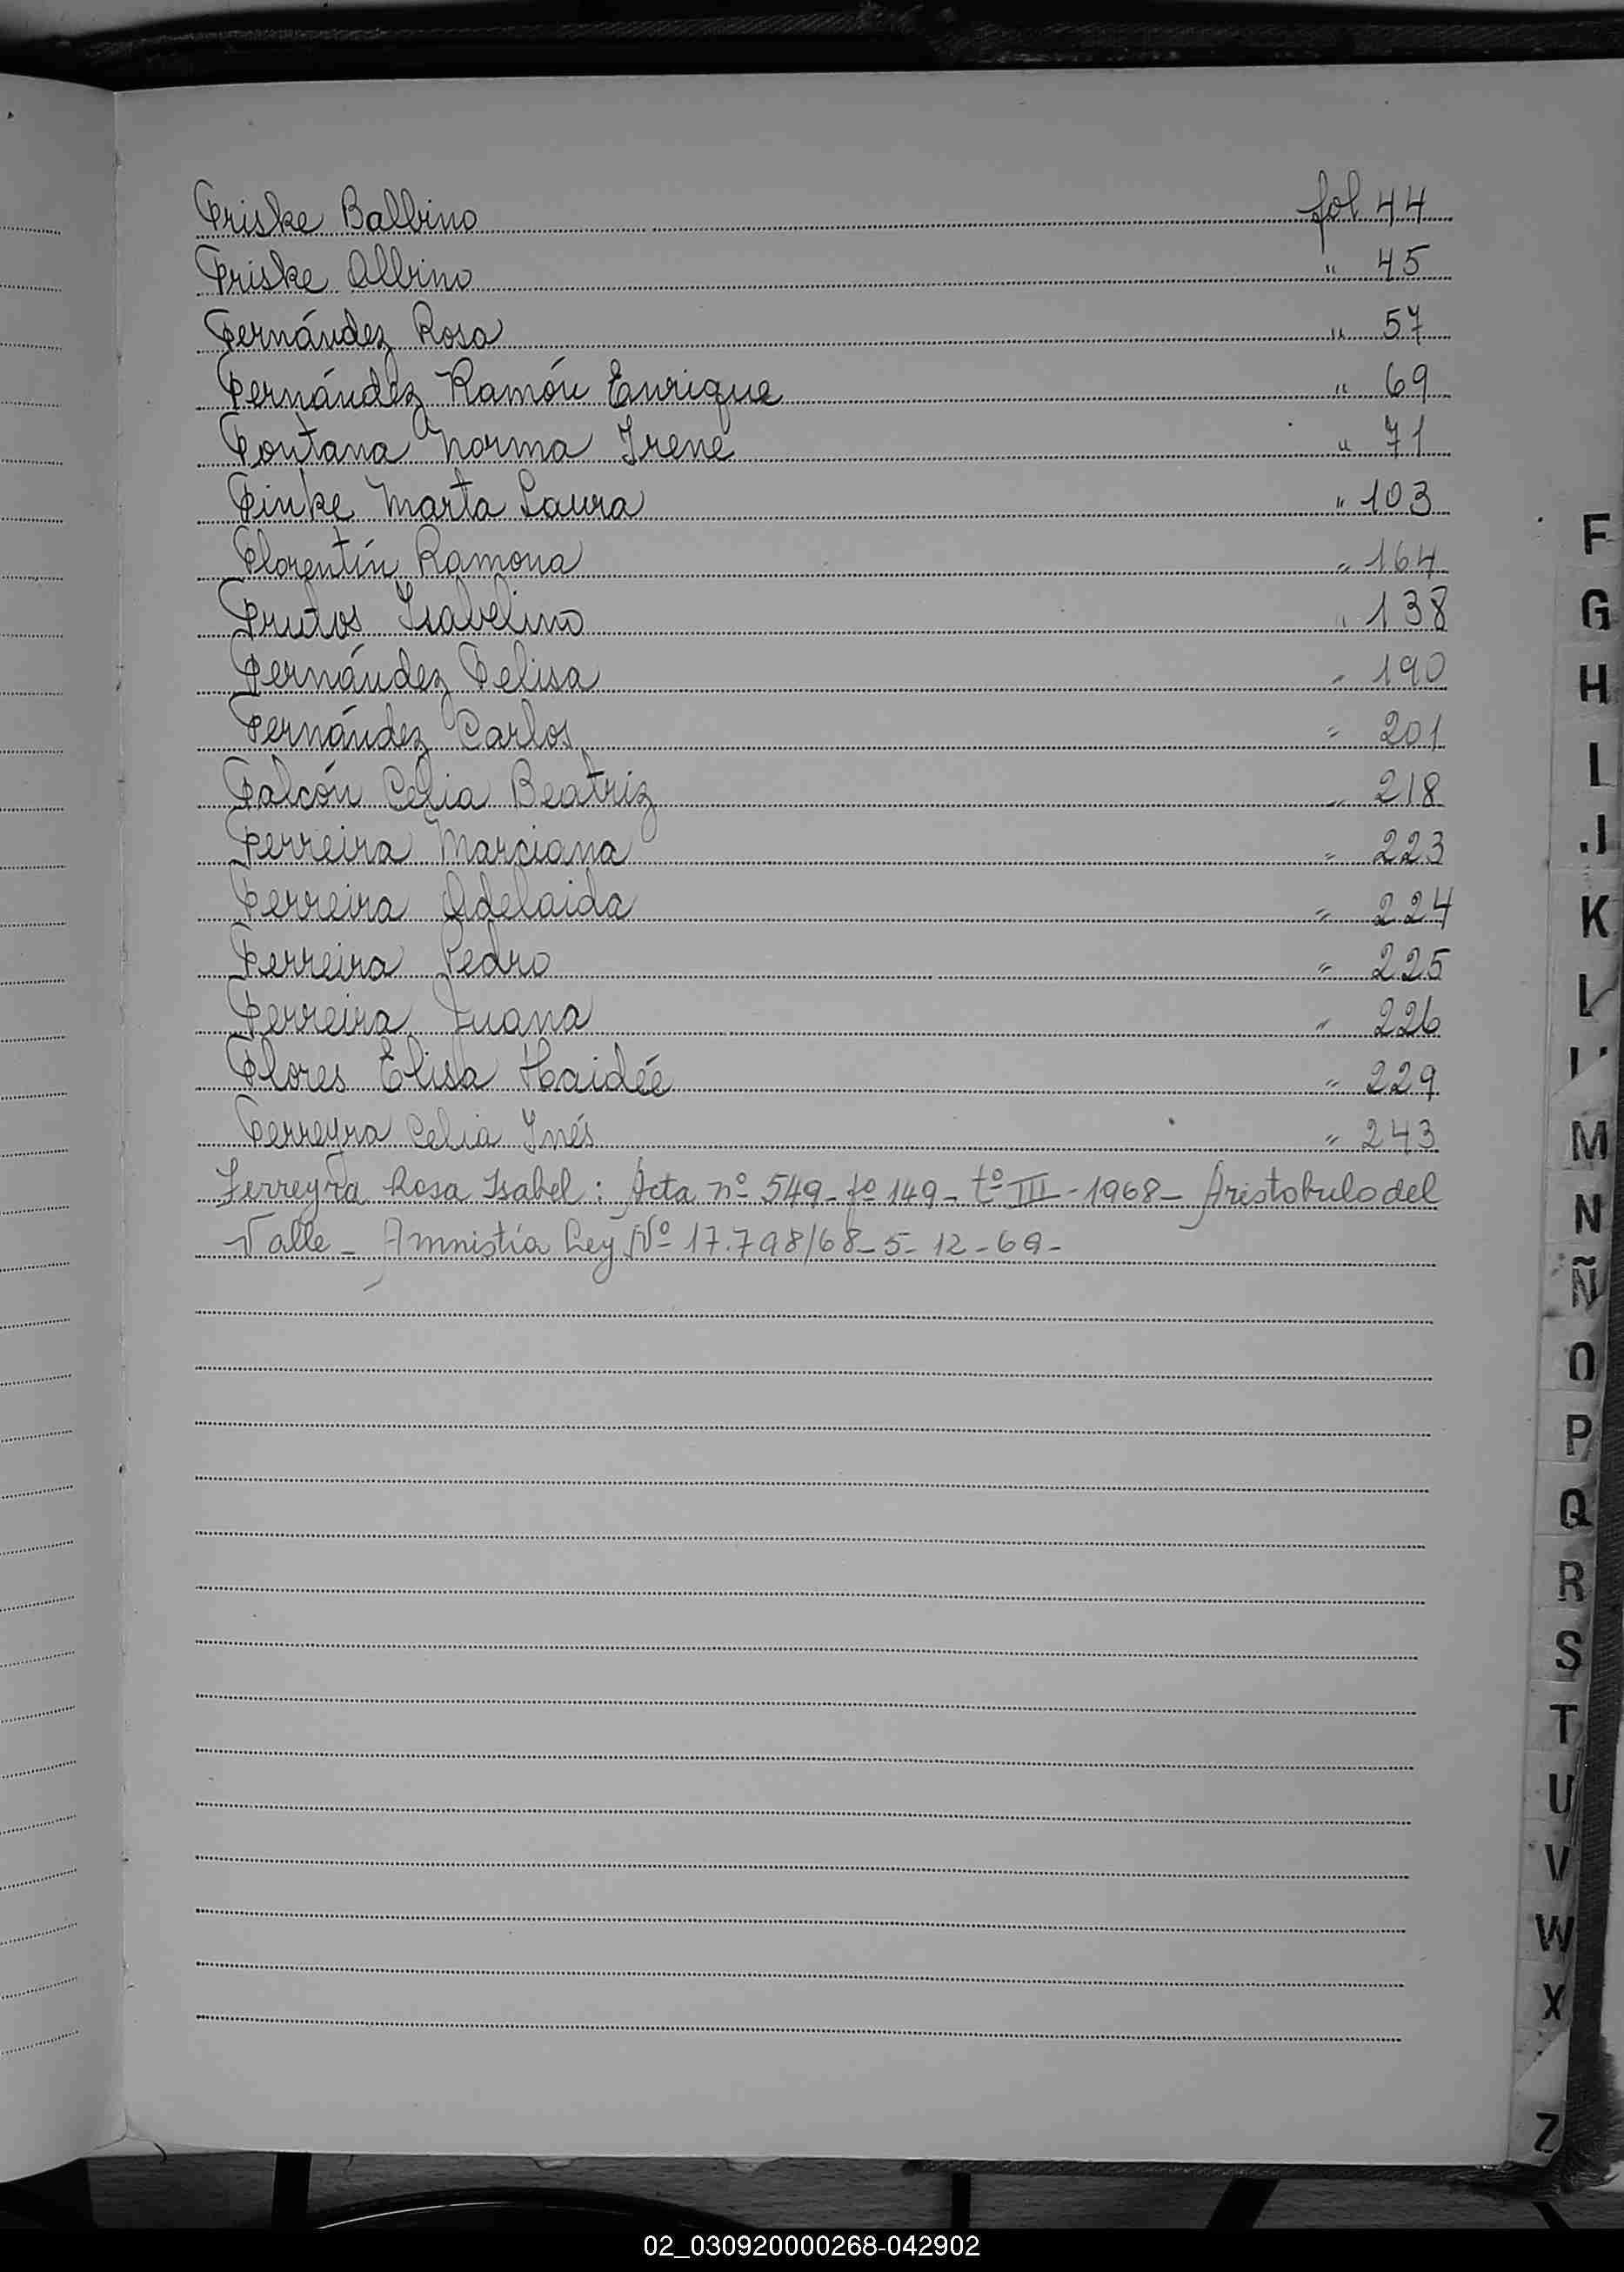 Friske Balbino fol 44
Friske Albino " 45
Fernández Rosa " 57
Fernández Ramón Enrique " 69
Fontana Norma Irene " 71
Finke Marta Laura " 103
Florentín Ramona " 164
Frutos Isabelino " 138
Fernández Felisa " 190
Fernández Carlos " 201
Falcón Celia Beatriz " 218
Ferreira Marciana " 223
Ferreira Adelaida " 224
Ferreira Pedro " 225
Ferreira Juana " 226
Flores Elisa Haidée " 229
Ferreyra Celia Inés " 243
Ferreyra Rosa Isabel: Acta nº 549- fº 149- tº III-1968- Aristobulo del
Valle- Amnistía Ley Nº 17.798/68-5-12-69-
F
G
H
I
J
K
L
M
N
Ñ
O
P
Q
R
S
T
U
V
W
X
Z
02_030920000268-042902